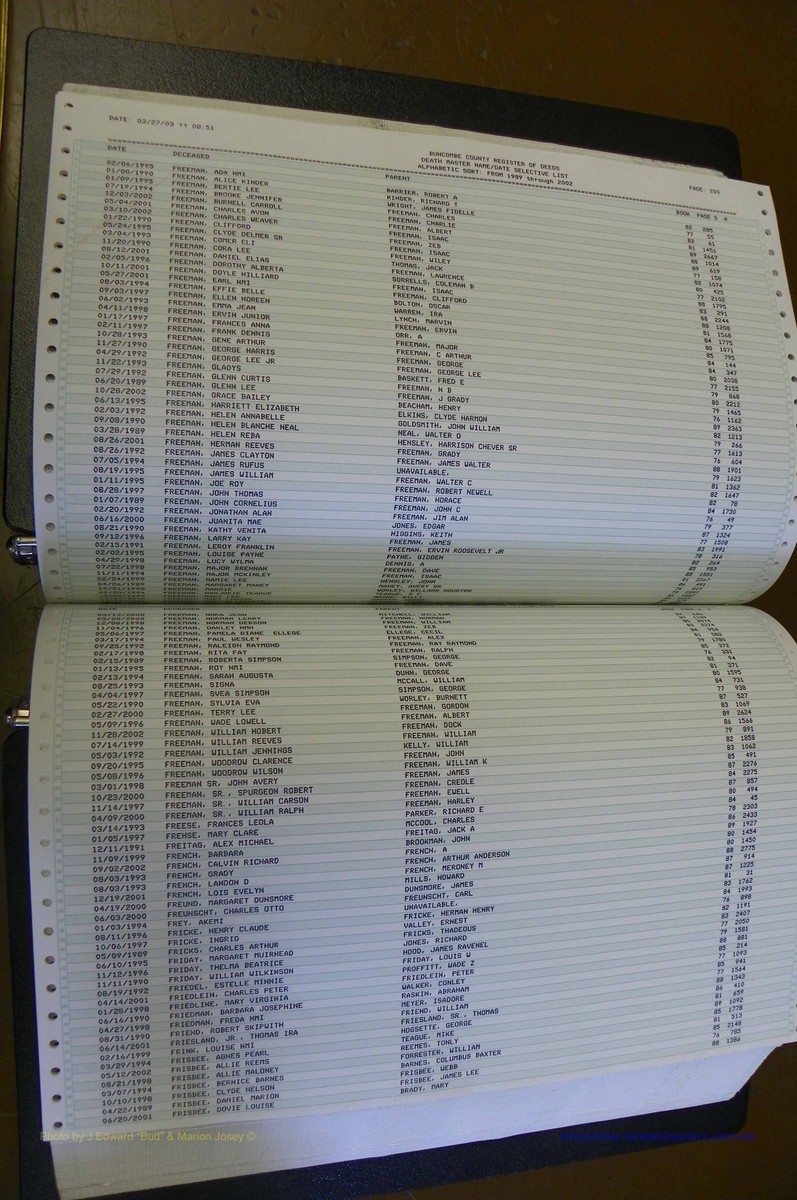 DATE: 03/27/03 ?? 08:51
BUNCOMBE COUNTY REGISTER OF DEEDS
DEATH MASTER NAME/DATE SELECTIVE LIST
ALPHABETIC SORT: FROM 1989 through 2002
PAGE: 250
DATE
02/06/1995
01/08/1990
01/09/1995
07/19/1994
12/03/2002
05/04/2001
03/10/2002
01/22/1990
05/24/1995
03/04/1993
11/20/1990
08/12/2001
02/05/1996
10/11/2001
05/27/2001
08/03/1994
09/03/1997
06/02/1993
04/11/1998
01/17/1997
02/11/1997
10/28/1993
11/27/1990
04/29/1992
11/22/1993
07/29/1992
06/20/1989
10/28/2002
06/13/1995
02/03/1992
09/08/1990
03/28/1989
08/26/2001
08/26/1992
07/05/1994
08/19/1995
01/11/1995
08/28/1997
01/07/1989
02/20/1992
06/16/2000
08/21/1990
09/12/1996
02/15/1991
02/02/1995
04/29/1998
07/22/1998
DECEASED
FREEMAN, ADA NMI
FREEMAN, ALICE KINDER
FREEMAN, BERTIE LEE
FREEMAN, BROOKE JENNIFER
FREEMAN, BURNELL CARROLL
FREEMAN, CHARLES AVON
FREEMAN, CHARLES WEAVER
FREEMAN, CLIFFORD
FREEMAN, CLYDE DELMER SR
FREEMAN, COMER ELI
FREEMAN, CORA LEE
FREEMAN, DANIEL ELIAS
FREEMAN, DOROTHY ALBERTA
FREEMAN, DOYLE HILLIARD
FREEMAN, EARL NMI
FREEMAN, EFFIE BELLE
FREEMAN, ELLEN NOREEN
FREEMAN, EMMA JEAN
FREEMAN, ERVIN JUNIOR
FREEMAN, FRANCES ANNA
FREEMAN, FRANK DENNIS
FREEMAN, GENE ARTHUR
FREEMAN, GEORGE HARRIS
FREEMAN, GEORGE LEE JR
FREEMAN, GLADYS
FREEMAN, GLENN CURTIS
FREEMAN, GLENN LEE
FREEMAN, GRACE BAILEY
FREEMAN, HARRIETT ELIZABETH
FREEMAN, HELEN ANNABELLE
FREEMAN, HELEN BLANCHE NEAL
FREEMAN, HELEN REBA
FREEMAN, HERMAN REEVES
FREEMAN, JAMES CLAYTON
FREEMAN, JAMES RUFUS
FREEMAN, JAMES WILLIAM
FREEMAN, JOE ROY
FREEMAN, JOHN THOMAS
FREEMAN, JOHN CORNELIUS
FREEMAN, JONATHAN ALAN
FREEMAN, JUANITA MAE
FREEMAN, KATHY VENITA
FREEMAN, LARRY KAY
FREEMAN, LEROY FRANKLIN
FREEMAN, LOUISE PAYNE
FREEMAN, LUCY WYLMA
FREEMAN, MAJOR BRENNAN
FREEMAN, MAJOR MCKINLEY
FREEMAN, MAMIE LEE
FREEMAN, MARGARET MANEY
PARENT
BARRIER, ROBERT A
KINDER, RICHARD T
WRIGHT, JAMES FIDELLE
FREEMAN, CHARLES
FREEMAN, CHARLIE
FREEMAN, ALBERT
FREEMAN, ISAAC
FREEMAN, ZEB
FREEMAN, ISAAC
FREEMAN, WILEY
THOMAS, JACK
FREEMAN, LAWRENCE
SORRELLS, COLEMAN B
FREEMAN, ISAAC
FREEMAN, CLIFFORD
BOLTON, OSCAR
WARREN, IRA
LYNCH, MARVIN
FREEMAN, ERVIN
ORR, A
FREEMAN, MAJOR
FREEMAN, C ARTHUR
FREEMAN, GEORGE
FREEMAN, GEORGE LEE
BASKETT, FRED E
FREEMAN, N B
FREEMAN, J GRADY
BEACHAM, HENRY
ELKINS, CLYDE HARMON
GOLDSMITH, JOHN WILLIAM
NEAL, WALTER O
HENSLEY, HARRISON CHEVER SR
FREEMAN, GRADY
FREEMAN, JAMES WALTER
UNAVAILABLE,
FREEMAN, WALTER C
FREEMAN, ROBERT NEWELL
FREEMAN, HORACE
FREEMAN, JOHN C
FREEMAN, JIM ALAN
JONES, EDGAR
HIGGINS, KEITH
FREEMAN, JAMES
FREEMAN, ERVIN ROOSEVELT JR
PAYNE, GIDDEN
DENNIS, A
FREEMAN, DAVE
FREEMAN, ISAAC
HENSLEY, JOHN
BOOK PAGE S R
82 285
77 55
82 61
81 1451
89 2667
88 1014
89 619
77 158
82 1074
80 425
77 2102
88 1795
83 291
88 2244
88 1208
81 1568
84 1775
80 1071
85 795
84 144
84 347
80 2038
77 2155
79 868
80 2212
79 1465
76 1162
89 2363
82 1213
79 266
77 1613
76 604
88 1901
79 1623
81 1362
82 1647
82 78
84 1730
76 49
79 377
87 1324
77 1508
83 1991
78 316
82 264
85 953
FREEMAN, NORMAN LEARY
FREEMAN, NORMAN DEBSON
FREEMAN, OAKLEY NMN
FREEMAN, PAMELA DIANE ELLEGE
FREEMAN, PAUL WESLEY
FREEMAN, RALEIGH RAYMOND
FREEMAN, RITA FAY
FREEMAN, ROBERTA SIMPSON
FREEMAN, ROY NMI
FREEMAN, SARAH AUGUSTA
FREEMAN, SIGNA
FREEMAN, SVEA SIMPSON
FREEMAN, SYLVIA EVA
FREEMAN, TERRY LEE
FREEMAN, WADE LOWELL
FREEMAN, WILLIAM HOBERT
FREEMAN, WILLIAM REEVES
FREEMAN, WILLIAM JENNINGS
FREEMAN, WOODROW CLARENCE
FREEMAN, WOODROW WILSON
FREEMAN SR, JOHN AVERY
FREEMAN, SR., SPURGEON ROBERT
FREEMAN, SR., WILLIAM CARSON
FREEMAN, SR., WILLIAM RALPH
FREESE, FRANCES LEOLA
FREHSE, MARY CLARE
FREITAG, ALEX MICHAEL
FRENCH, BARBARA
FRENCH, CALVIN RICHARD
FRENCH, GRADY
FRENCH, LANDON D
FRENCH, LOIS EVELYN
FREUND, MARGARET DUNSMORE
FREUNSCHT, CHARLES OTTO
FREY, AKEMI
FRICKE, HENRY CLAUDE
FRICKE, INGRID
FRICKS, CHARLES ARTHUR
FRIDAY, MARGARET MUIRHEAD
FRIDAY, THELMA BEATRICE
FRIDAY, WILLIAM WILKINSON
FRIEDEL, ESTELLE MINNIE
FRIEDLEIN, CHARLES PETER
FRIEDLINE, MARY VIRGINIA
FRIEDMAN, BARBARA JOSEPHINE
FRIEDMAN, FREDA NMI
FRIEND, ROBERT SKIPWITH
FRIESLAND, JR., THOMAS IRA
FRINK, LOUISE NMI
FRISBEE, AGNES PEARL
FRISBEE, ALLIE REEMS
FRISBEE, ALLIE MALONEY
FRISBEE, BERNICE BARNES
FRISBEE, CLYDE NELSON
FRISBEE, DANIEL MARION
FRISBEE, DOVIE LOUISE
11/04/1996
05/06/1997
03/17/1994
09/25/1992
02/17/1998
02/15/1989
01/13/1995
02/13/1994
08/25/1993
04/04/1997
05/22/1990
02/27/2000
05/09/1996
11/28/2002
07/14/1999
05/03/1992
09/20/1995
05/08/1996
03/01/1998
10/23/2000
11/14/1997
04/09/2000
03/14/1993
01/05/1997
12/11/1991
11/09/1999
09/02/2002
08/03/1993
08/03/1993
12/19/2001
04/19/2000
06/03/2000
01/03/1994
08/11/1996
10/06/1997
05/09/1989
06/10/1995
11/12/1996
11/11/1990
08/19/1992
04/14/2001
01/28/1998
06/16/1990
04/27/1998
08/31/1990
06/14/2001
02/16/1999
03/29/1994
05/12/2002
08/21/1998
03/07/1994
10/10/1998
04/22/1989
06/20/2001
MITCHELL, WILLIAM
FREEMAN, NORMAN
FREEMAN, WILLIAM
FREEMAN, ZEB
ELLEGE, CECIL
FREEMAN, ALEX
FREEMAN, RAY RAYMOND
FREEMAN, RALPH
SIMPSON, GEORGE
FREEMAN, DAVE
DUNN, GEORGE
MCCALL, WILLIAM
SIMPSON, GEORGE
WORLEY, BURNETT
FREEMAN, GORDON
FREEMAN, ALBERT
FREEMAN, DOCK
FREEMAN, WILLIAM
KELLY, WILLIAM
FREEMAN, JOHN
FREEMAN, WILLIAM K
FREEMAN, JAMES
FREEMAN, CREOLE
FREEMAN, EWELL
FREEMAN, HARLEY
PARKER, RICHARD E
MCCOOL, CHARLES
FREITAG, JACK A
BROOKMAN, JOHN
FRENCH, A
FRENCH, ARTHUR ANDERSON
FRENCH, MERONEY M
MILLS, HOWARD
DUNSMORE, JAMES
FREUNSCHT, CARL
UNAVAILABLE,
FRICKE, HERMAN HENRY
VALLEY, ERNEST
FRICKS, THADEOUS
JONES, RICHARD
HOOD, JAMES RAVENEL
FRIDAY, LOUIS W
PROFFITT, WADE Z
FRIEDLEIN, PETER
WALKER, CONLEY
RASKIN, ABRAHAM
MEYER, ISADORE
FRIEND, WILLIAM
FRIESLAND, SR., THOMAS
HOGSETTE, GEORGE
TEAGUE, MIKE
REEMES, TONLY
FORRESTER, WILLIAM
BARNES, COLUMBUS BAXTER
FRISBEE, WEBB
FRISBEE, JAMES LEE
BRADY, MARY
82 94
81 371
80 1595
84 731
77 938
87 527
83 1069
89 2624
86 1566
79 891
82 1858
83 1062
85 491
87 2276
84 2275
87 857
80 494
84 45
78 2303
86 2433
89 1927
80 1454
80 1450
88 2775
87 914
87 1225
81 31
83 1762
84 1993
76 898
82 1191
83 2407
77 2050
79 1581
88 881
85 214
77 1093
85 941
77 1564
88 1343
86 410
81 659
89 1092
85 1778
81 513
85 2148
76 785
88 1386
Photo by J Edward "Bud" & Marion Josey ©